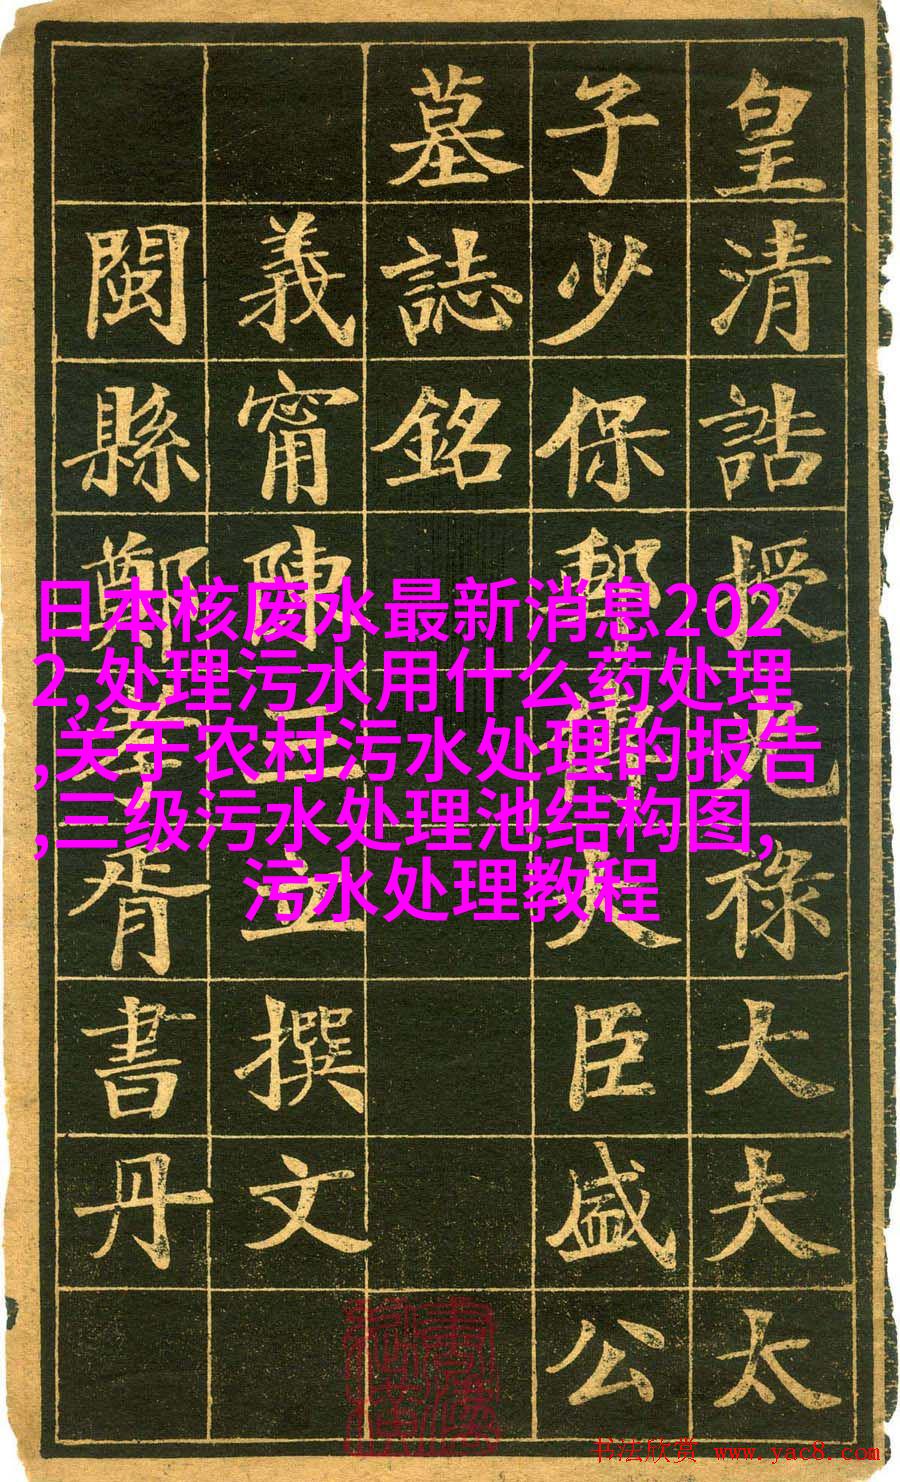 皇清誥授光祿大夫太
子少保郵傳大臣盛公
墓誌銘
義甯陳三立撰文
閩縣鄭孝胥書丹
日本核废水最新消息202
2,处理污水用什么药处理
,关于农村污水处理的报告
,三级污水处理池结构图,
污水处理教程
书法欣赏 www.yac8.com